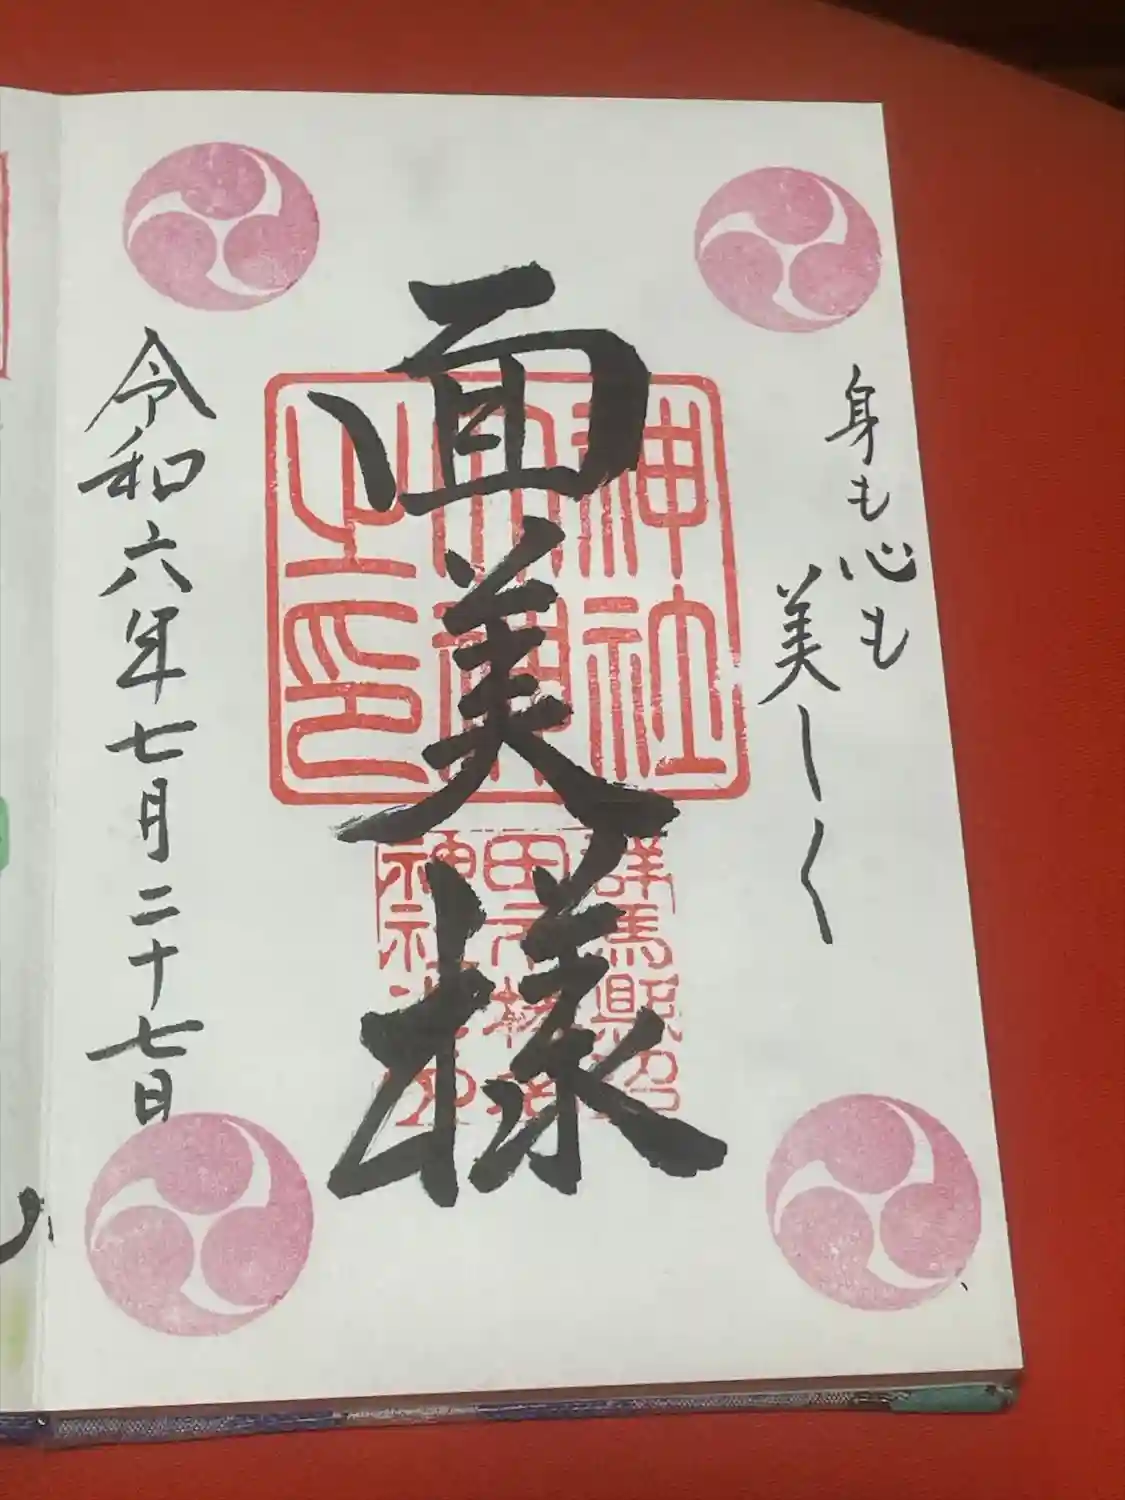 身も心も
美しく
面美様
神社
之印
群馬縣沼
田市
神社
令和六年七月二十七日